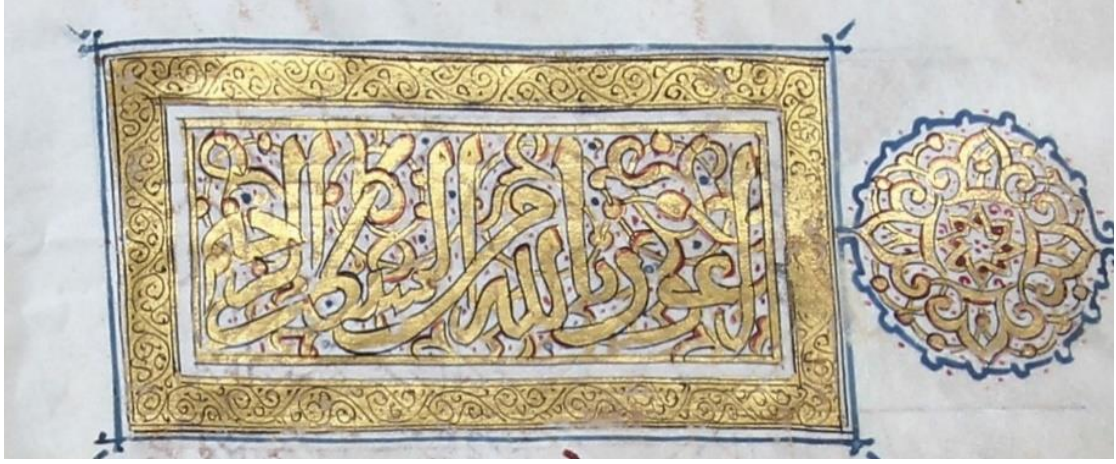 اعوذ بالله من الشيطان الرجيم